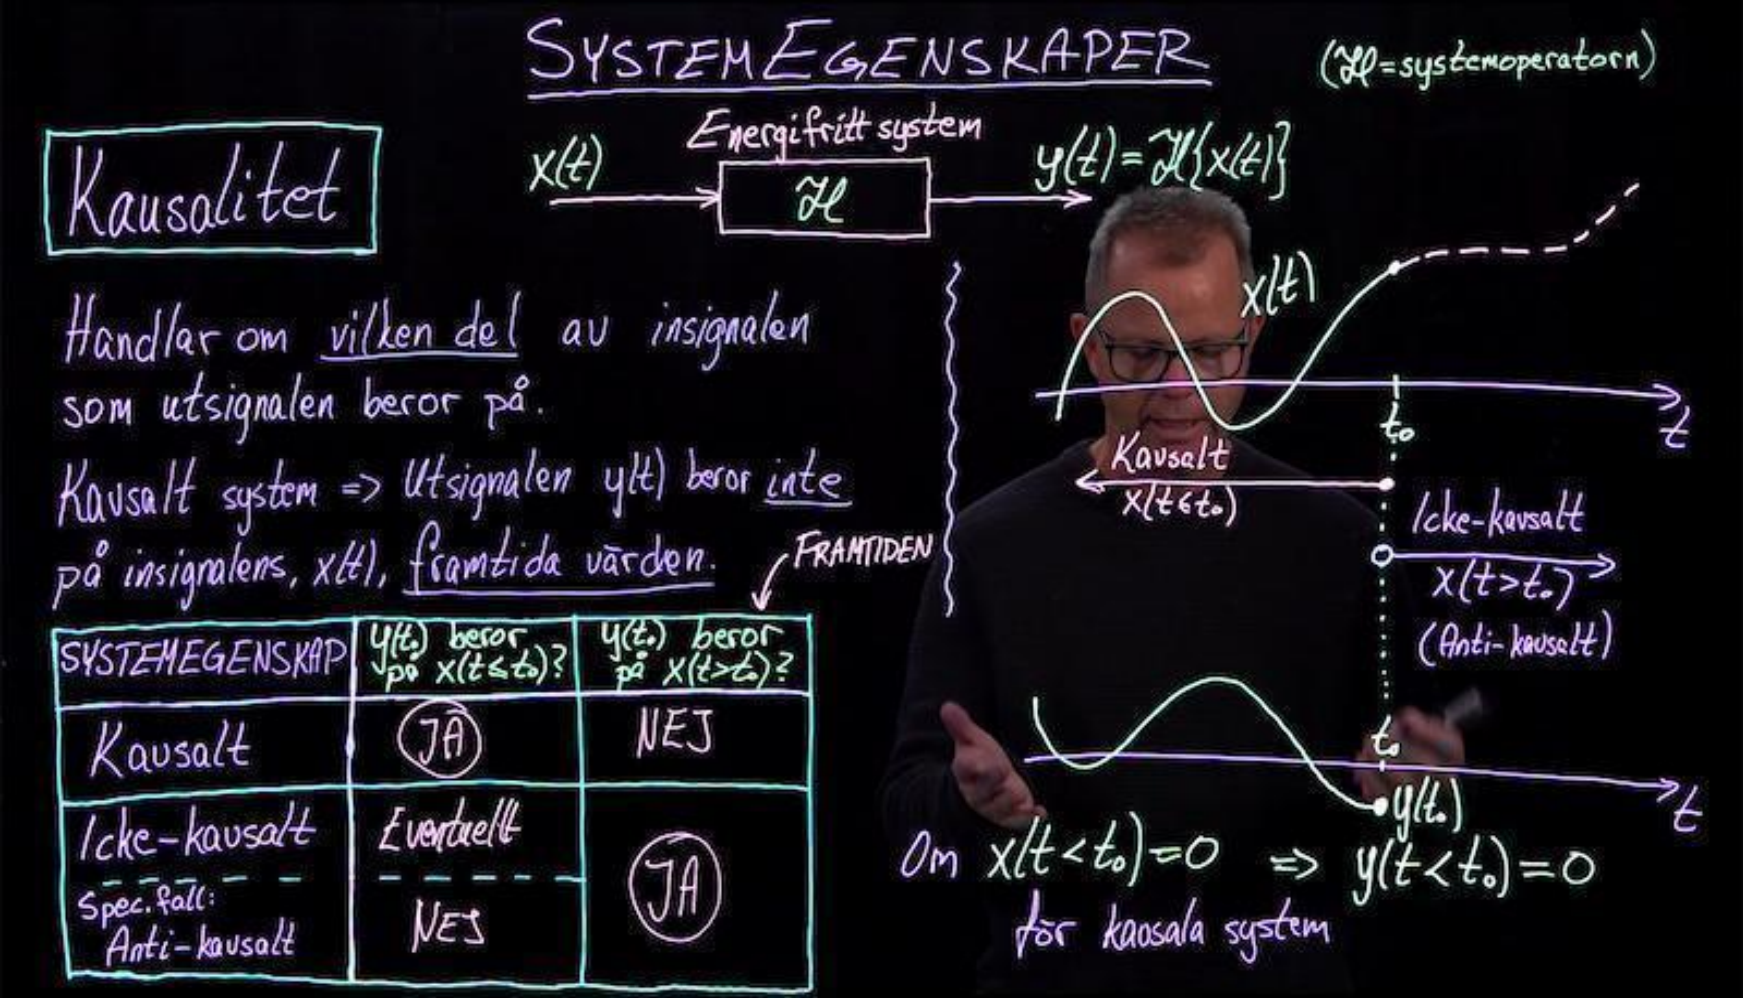 SYSTEMEGENSKAPER
(ℋ=systemoperatorn)
Kausalitet
Energifritt system
x(t)
ℋ
y(t)=ℋ{x(t)}
Handlar om vilken del av insignalen
som utsignalen beror på.
Kausalt system => Utsignalen y(t) beror inte
på insignalens, x(t), framtida värden.
FRAMTIDEN
SYSTEMEGENSKAP
y(t₀) beror
på x(t≤t₀)?
y(t₀) beror
på x(t>t₀)?
Kausalt
JA
NEJ
Icke-kausalt
Eventuellt
JA
Spec.fall:
Anti-kausalt
NEJ
x(t)
t₀
t
Kausalt
x(t≤t₀)
Icke-kausalt
x(t>t₀)
(Anti-kausalt)
t₀
y(t₀)
t
Om x(t<t₀)=0 => y(t<t₀)=0
för kausala system